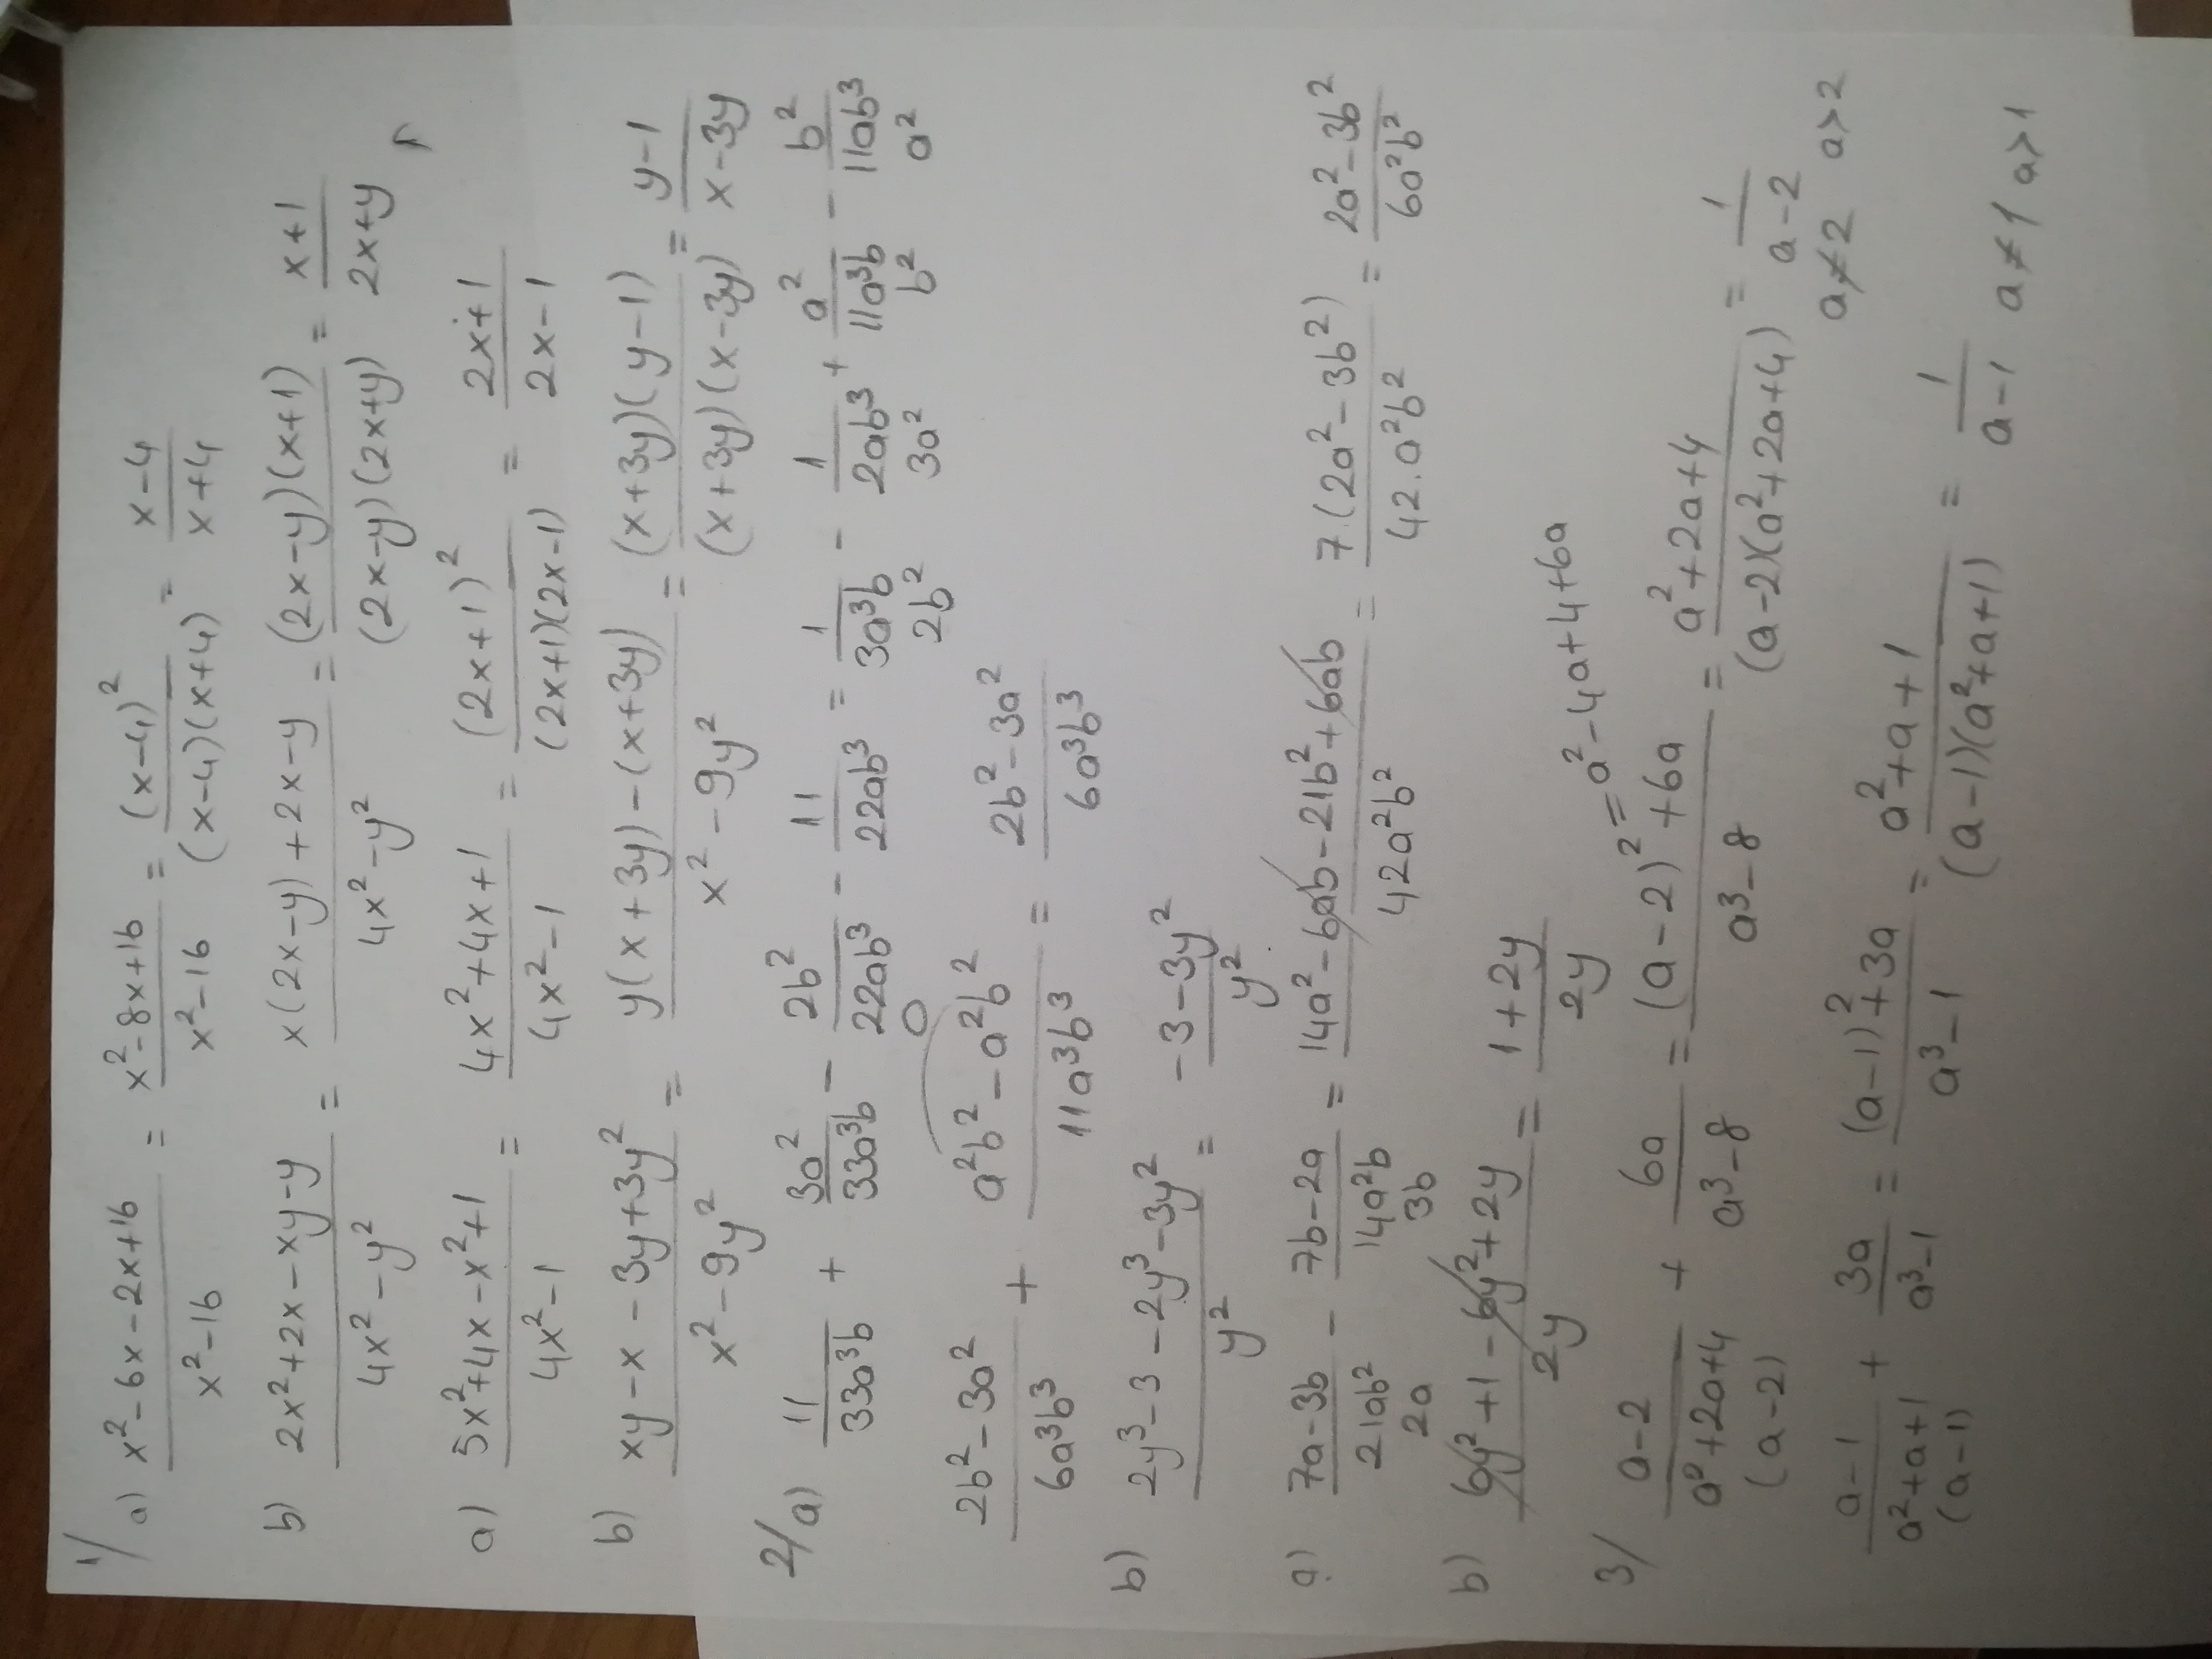 1/
a) (x²-6x-2x+16)/(x²-16) = (x²-8x+16)/(x²-16) = (x-4)²/((x-4)(x+4)) = (x-4)/(x+4)
b) (2x²+2x-xy-y)/(4x²-y²) = (x(2x-y)+2x-y)/(4x²-y²) = ((2x-y)(x+1))/((2x-y)(2x+y)) = (x+1)/(2x+y)
a) (5x²+4x-x²+1)/(4x²-1) = (4x²+4x+1)/(4x²-1) = (2x+1)²/((2x+1)(2x-1)) = (2x+1)/(2x-1)
b) (xy-x-3y+3y²)/(x²-9y²) = (y(x+3y)-(x+3y))/(x²-9y²) = ((x+3y)(y-1))/((x+3y)(x-3y)) = (y-1)/(x-3y)
2/a) 11/(33a³b) + 3a²/(33a³b) - 2b²/(22ab³) - 11/(22ab³) = 1/(3a³b) - 1/(2ab³) + a²/(11a³b) - b²/(11ab³)
2b² 3a² b² a²
(2b²-3a²)/(6a³b³) + (a²b²-a²b²)/(11a³b³) = (2b²-3a²)/(6a³b³)
0
b) (2y³-3-2y³-3y²)/y² = (-3-3y²)/y²
a) (7a-3b)/(21ab²) - (7b-2a)/(14a²b) = (14a²-6ab-21b²+6ab)/(42a²b²) = 7.(2a²-3b²)/(42.a²b²) = (2a²-3b²)/(6a²b²)
2a 3b
b) (6y²+1-6y²+2y)/(2y) = (1+2y)/(2y)
= a²-4a+4+6a
3/ (a-2)/(a²+2a+4) + 6a/(a³-8) = ((a-2)²+6a)/(a³-8) = (a²+2a+4)/((a-2)(a²+2a+4)) = 1/(a-2)
(a-2)
a≠2 a>2
(a-1)/(a²+a+1) + 3a/(a³-1) = ((a-1)²+3a)/(a³-1) = (a²+a+1)/((a-1)(a²+a+1)) = 1/(a-1) a≠1 a>1
(a-1)